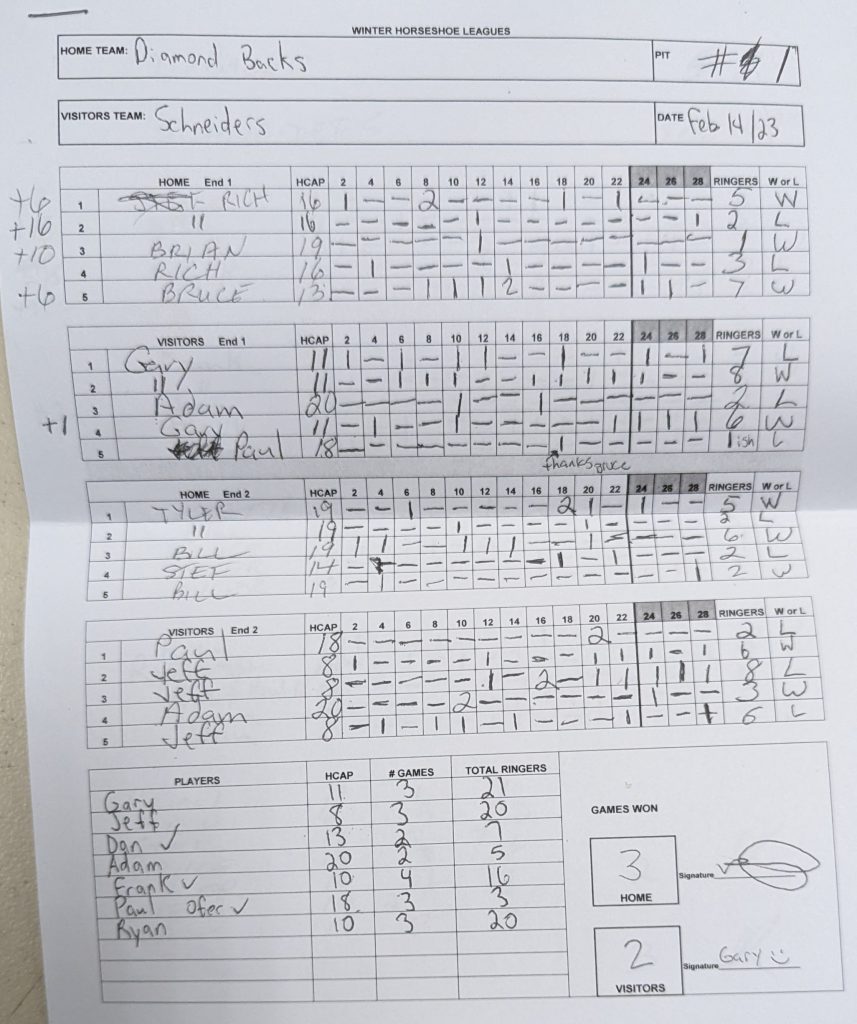 WINTER HORSESHOE LEAGUES
HOME TEAM: Diamond Backs PIT # 1
VISITORS TEAM: Schneiders DATE Feb 14/23
HOME End 1 HCAP 2 4 6 8 10 12 14 16 18 20 22 24 26 28 RINGERS W or L
+6 1 RICH 16 1 - - 2 - - - - 1 - 1 - - - 5 W
+16 2 11 16 - - - - - 1 - - - - - - - 1 2 L
+10 3 BRIAN 19 - - - - - 1 - - - - - - - - 1 W
4 RICH 16 - 1 - - - - 1 - - - - 1 - - 3 L
+6 5 BRUCE 13 - - - 1 1 1 2 - - - - 1 1 - 7 W
VISITORS End 1 HCAP 2 4 6 8 10 12 14 16 18 20 22 24 26 28 RINGERS W or L
1 Gary 11 1 - 1 - 1 1 - - 1 - - 1 - 1 7 L
2 11 11 - - 1 1 1 - - 1 1 1 1 1 - - 8 W
3 Adam 20 - - - - 1 - - 1 - - - - - - 2 L
+1 4 Gary 11 - 1 - - 1 - - - - - 1 1 1 1 6 W
5 Paul 18 - - - - - - - - 1 - - - - - 1ish L
thanks gruce
HOME End 2 HCAP 2 4 6 8 10 12 14 16 18 20 22 24 26 28 RINGERS W or L
1 TYLER 19 - - 1 - - - - - 2 1 - 1 - - 5 W
2 11 19 - - - - 1 - - - - 1 - - - - 2 L
3 BILL 19 1 1 - - 1 1 1 - - 1 - - - - 6 W
4 STEF 14 - - - - - - - - 1 - 1 - - - 2 L
5 BILL 19 - 1 - - - - - - - - - - - 1 2 W
VISITORS End 2 HCAP 2 4 6 8 10 12 14 16 18 20 22 24 26 28 RINGERS W or L
1 Paul 18 - - - - - - - - - 2 - - - - 2 L
2 Jeff 8 1 - - - - 1 - - - 1 1 1 - 1 6 W
3 Jeff 8 - - - - - 1 - 2 - 1 1 1 1 1 8 L
4 Adam 20 - - - - 2 - - - - - - 1 - - 3 W
5 Jeff 8 - 1 - 1 1 - 1 - - - 1 - - 1 6 L
PLAYERS HCAP # GAMES TOTAL RINGERS
Gary 11 3 21
Jeff 8 3 20
Dan ✓ 13 2 7
Adam 20 2 5
Frank ✓ 10 4 16
Paul Ofer ✓ 18 3 3
Ryan 10 3 20
GAMES WON
3 Signature
HOME
2 Signature Gary ☺
VISITORS